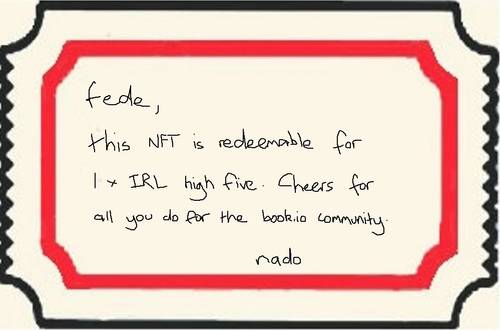 fede,
this NFT is redeemable for
1 x IRL high five. Cheers for
all you do for the book.io community.
nado